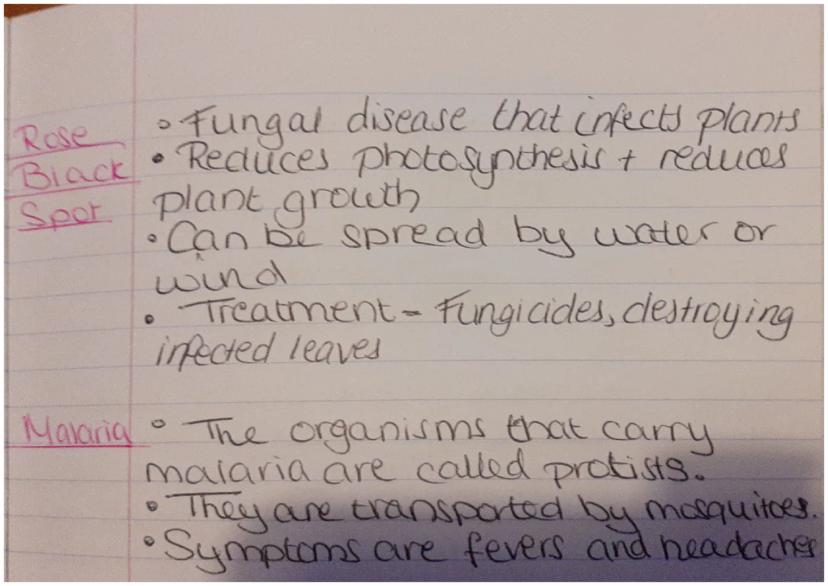 Rose
Black
Spot
• Fungal disease that infects plants
• Reduces photosynthesis + reduces
plant growth
• Can be spread by water or
wind
• Treatment - Fungicides, destroying
infected leaves
Malaria
• The organisms that carry
malaria are called protists.
• They are transported by mosquitoes.
• Symptoms are fevers and headaches